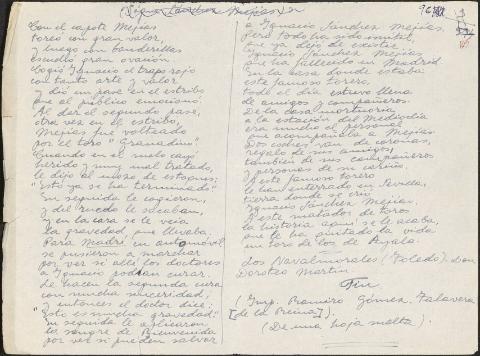 (Ignacio Sánchez Mejías)
Con el capote Mejías
toreó con gran valor,
y luego con banderillas
escuchó gran ovación.
Cogió Ignacio el trapo rojo
con tanto arte y valor
y dió un pase en el estribo
que al público emocionó.
Al dar el segundo pase,
otra vez en el estribo,
Mejías fue volteado
por el toro "Granadino".
Cuando en el suelo cayó
herido y mal tratado,
le dijo al mozo de estoques:
"Esto ya se ha terminado"
En seguida le cogieron,
y del ruedo le sacaban,
y en la cara se le veía
la gravedad que llevaba.
Para Madrí en automóvil
se pusieron a marchar
por ver si allí los doctores
a Ignacio podían curar.
Le hacen la segunda cura
con mucha sinceridad,
y entonces el doctor dice:
"Esto es mucha gravedad."
En seguida le aplicaron
la sangre de Bienvenida
por ver si pueden salvar
96
a Ignacio Sánchez Mejías,
Pero todo ha sido inútil,
que ya dejó de existir
Ignacio Sánchez Mejías
que ha fallecido en Madrid
En la casa donde estaba
este famoso torero,
todo el día estuvo llena
de amigos y compañeros.
De la casa mortuoria
a la estación del Mediodía
era mucho el personal
que acompañaba a Mejías.
Dos coches van de coronas,
regalo de sus amigos,
también de sus compañeros
y personas de su cariño.
A este famoso torero
le han enterrado en Sevilla,
tierra donde se crió
Ignacio Sánchez Mejías.
A este matador de toros
la historia aquí se le acaba,
que le ha quitado la vida
un toro de los de Ayala.
Los Navalmorales (Toledo). Don
Doroteo Martín
Fin
(Imp. Ramiro Gómez, Talavera
[de la Reina]).
(De una hoja suelta).